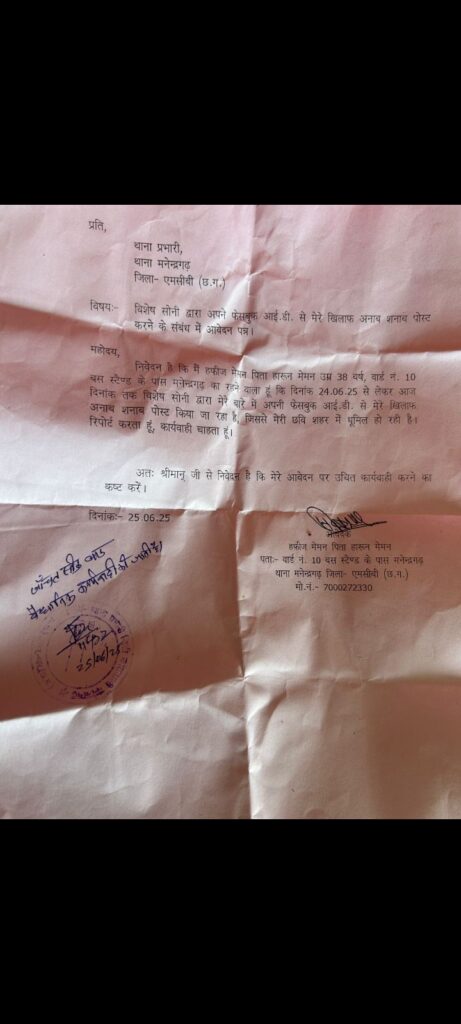 प्रति,
थाना प्रभारी,
थाना मनेन्द्रगढ़
जिला- एमसीबी (छ.ग.)
विषय:- विशेष सोनी द्वारा अपने फेसबुक आई.डी. से मेरे खिलाफ अनाब शनाब पोस्ट
करने के संबंध में आवेदन पत्र।
महोदय,
निवेदन है कि मैं हफीज मेमन पिता हारून मेमन उम्र 38 वर्ष, वार्ड नं. 10
बस स्टैण्ड के पास मनेन्द्रगढ़ का रहने वाला हूं कि दिनांक 24.06.25 से लेकर आज
दिनांक तक विशेष सोनी द्वारा मेरे बारे में अपनी फेसबुक आई.डी. से मेरे खिलाफ
अनाब शनाब पोस्ट किया जा रहा है, जिससे मेरी छवि शहर में धूमिल हो रही है।
रिपोर्ट करता हूं, कार्यवाही चाहता हूं।
अतः श्रीमान् जी से निवेदन है कि मेरे आवेदन पर उचित कार्यवाही करने का
कष्ट करें।
दिनांक:- 25.06.25
हफीज मेमन पिता हारून मेमन
पता:- वार्ड नं. 10 बस स्टैण्ड के पास मनेन्द्रगढ़
थाना मनेन्द्रगढ़ जिला- एमसीबी (छ.ग.)
मो.नं.- 7000272330
की जाती है।
25/06/25